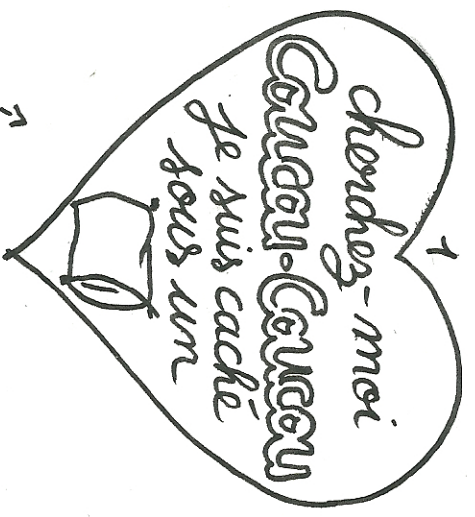 1
cherchez-moi
Coucou-Coucou
Je suis caché
sous un